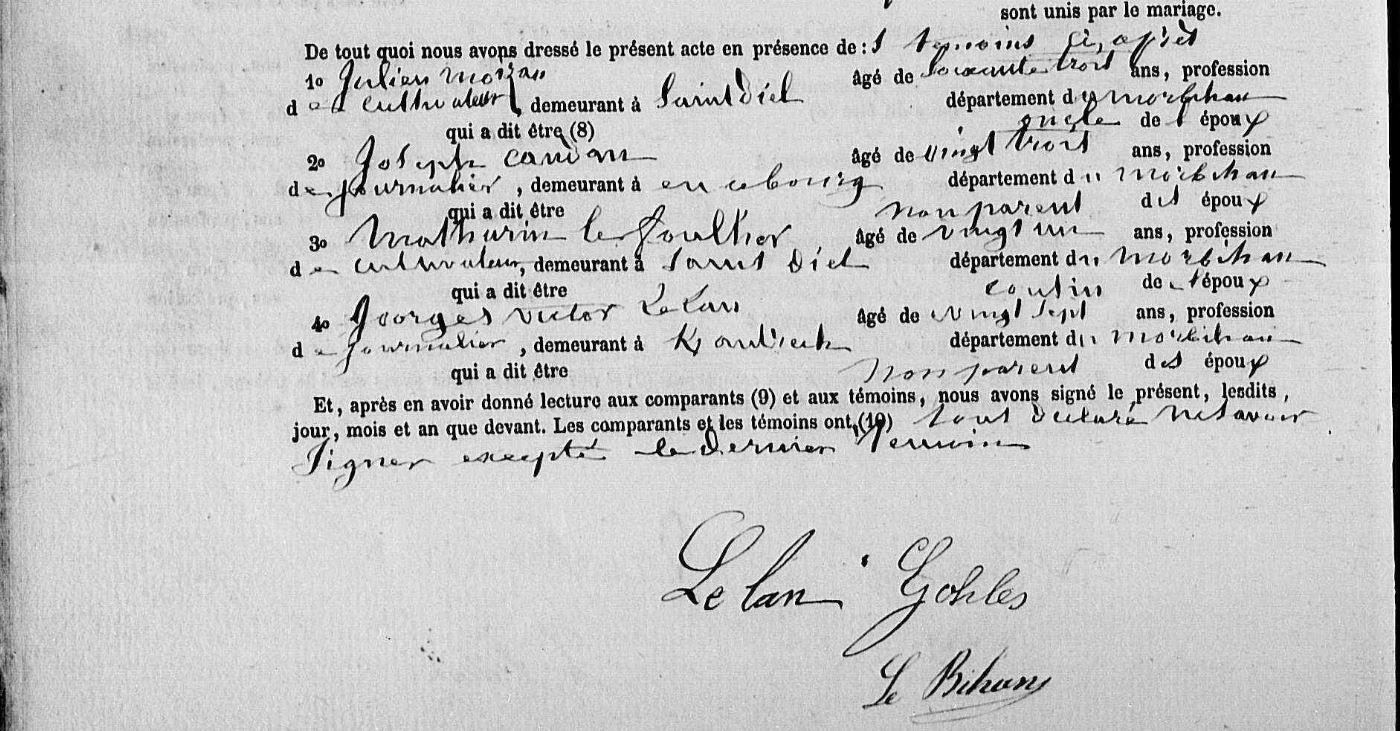 sont unis par le mariage.
De tout quoi nous avons dressé le présent acte en présence de : s temoins ci, après
1o Julien morzan âgé de Soixante trois ans, profession
d e cultivateur, demeurant à Saint Diel département du morbihan
qui a dit être (8) oncle de l époux
2o Joseph candan âgé de vingt trois ans, profession
d e journalier, demeurant à en ce bourg département du morbihan
qui a dit être non parent des époux
3o Mathurin le Joulher âgé de vingt un ans, profession
d e cultivateur, demeurant à Saint Diel département du morbihan
qui a dit être cousin de l époux
4o Georges victor Le Lan âgé de vingt sept ans, profession
d e journalier, demeurant à département du morbihan
qui a dit être non parent des époux
Et, après en avoir donné lecture aux comparants (9) et aux témoins, nous avons signé le présent, lesdits,
jour, mois et an que devant. Les comparants et les témoins ont, (10) tout déclaré ne savoir
Signer excepté le dernier Temoin
Le lan Gohles
Le Bihan